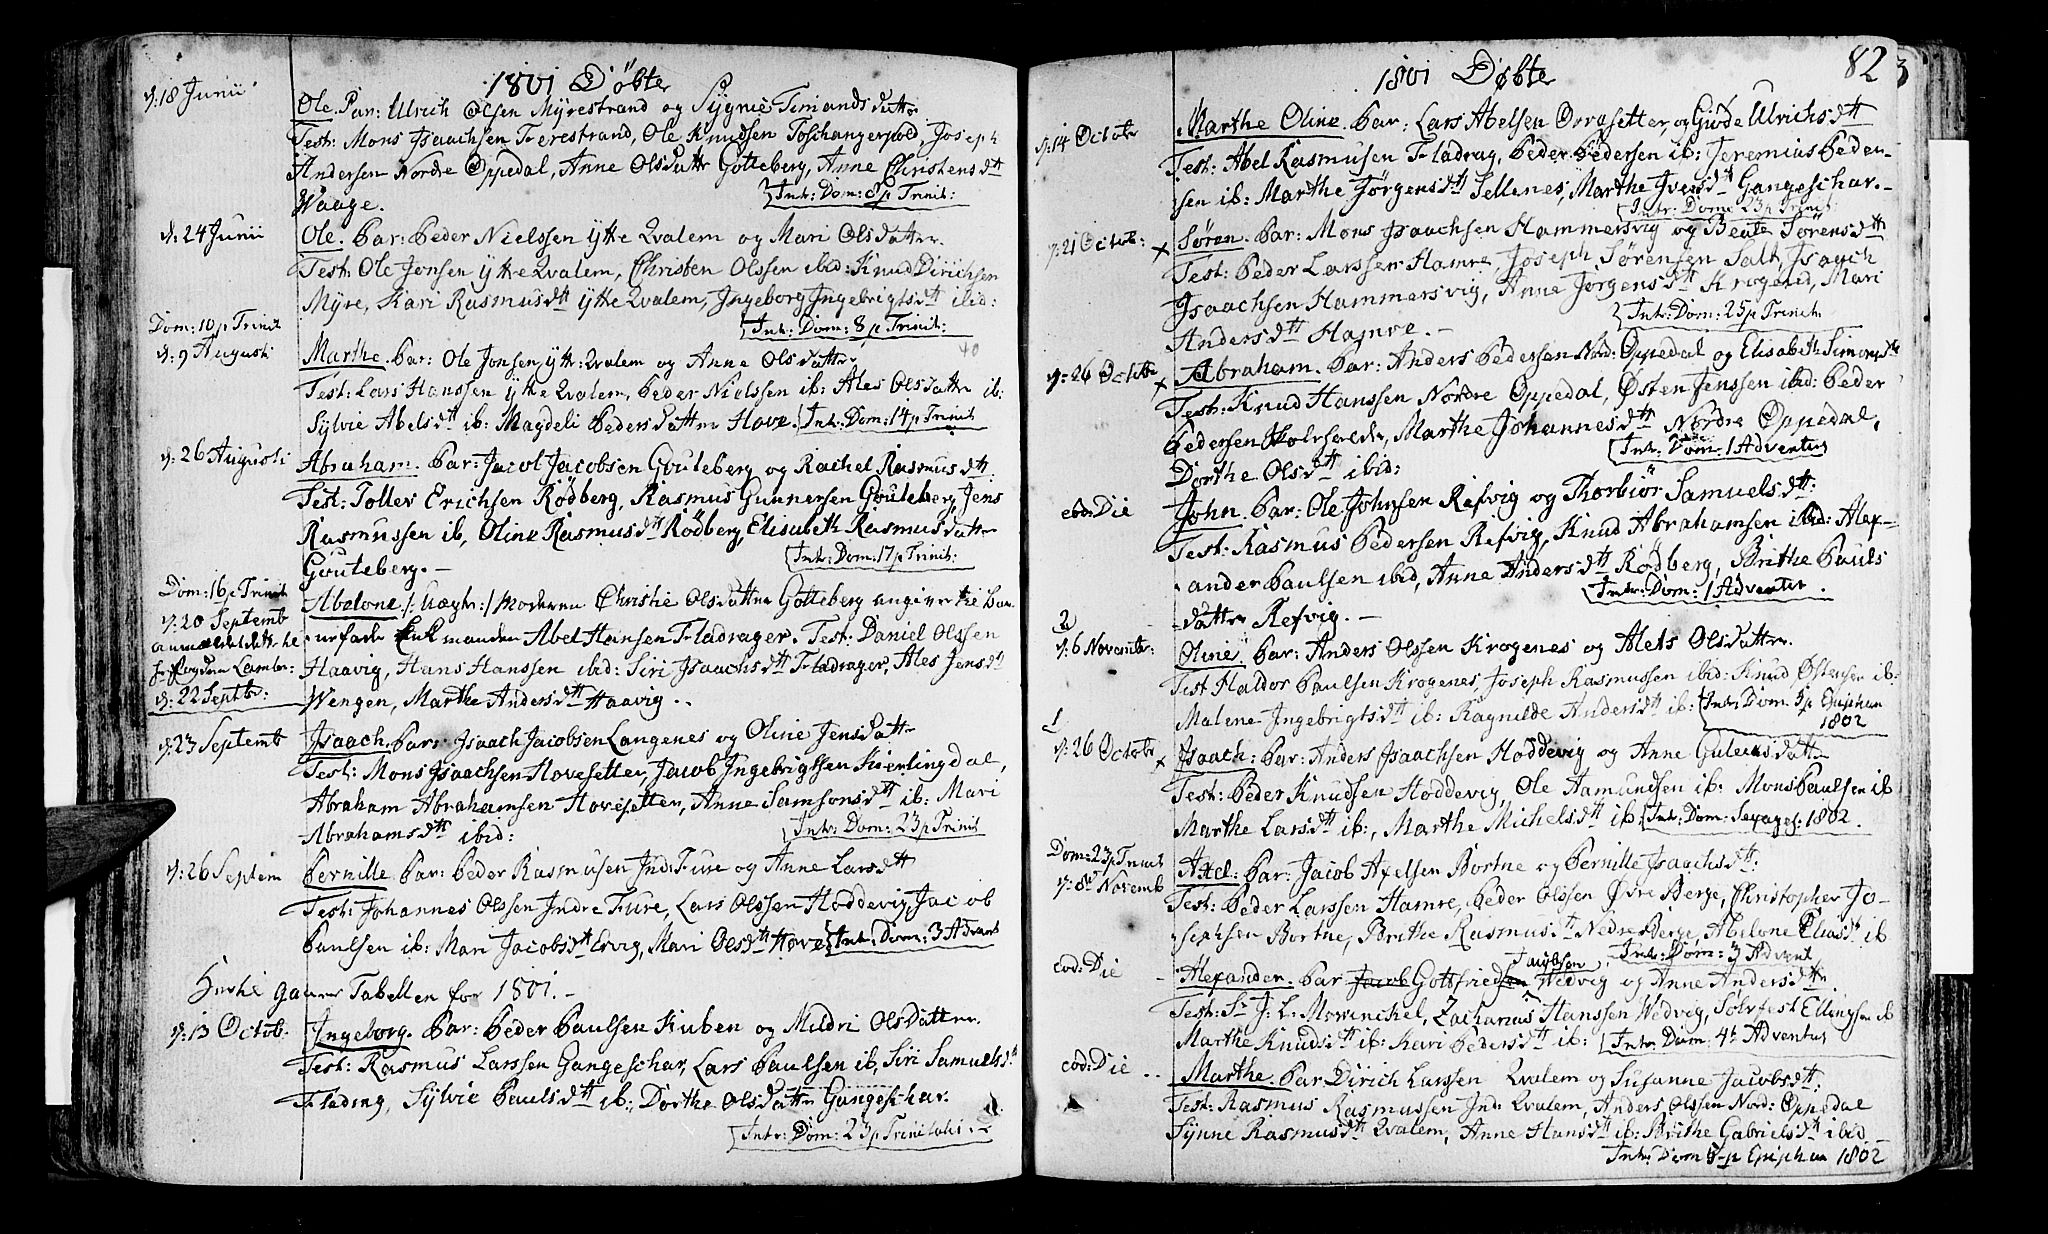 1801 Döbte
d: 18 Junii
Ole. Par: Ulrich Olsen Myrestrand og Sygnie Timands datter
Test: Mons Isaachsen Ferestrand, Ole Knudsen Joseph
Andersen Nordre Oppedal, Anne Olsdattr Gotteberg, Anne Christensdtt
Waage.
Intr: Dom: 8 p Trinit:
d: 24 Junii
Ole. Par: Peder Nielssen ytte Qvalem og Mari Olsdatter.
Test: Ole Jonsen ytte Qvalem, Christen Olssen ibid: Knud Dirichsen
Myre, Kari Rasmusdtt ytte Qvalem, Ingeborg Ingebrigtsdtt ibid:
Intr: Dom: 8 p Trinit:
Dom: 10 p Trinit
d: 9 Augusti
Marthe. Par: Ole Jonsen ytt: Qvalem og Anne Olsdatter
40
Test: Lars Hanssen ytte Qvalem, Peder Nielssen ib: Ales Olsdattr ib:
Sylvie Abelsdtt ib: Magdeli Pedersdatter Hove. Intr: Dom: 14 p Trinit
d: 26 Augusti
Abraham. Par: Jacob Jacobsen Gouteberg og Rachel Rasmusdtt:
Test: Toller Erichsen Rödberg, Rasmus Gunnersen Gouteberg, Jens
Rasmussen ib, Oline Rasmusdtt Rödberg, Elisabeth Rasmusdatter
Gouteberg. -
Intr: Dom: 17 p Trinit:
Dom: 16 p Trinit
d: 20 Septemb
d: 22 Septbr:
Abelone /: Uægte :/ Moderen Christie Olsdatter Gotteberg angiver til Bar
nefader Enkemanden Abel Hansen Fladrager. Test: Daniel Olssen
Haavig, Hans Hanssen ibid: Siri Isaachsdtt Fladrager, Ales Jensdtt
Wengen, Marthe Andersdtt Haavig. -
d: 23 Septemb
Isaach. Par: Isaach Jacobsen Langenes og Oline Jensdattr
Test: Mons Isaachsen Hovesetter, Jacob Ingebrigtsen Kierlingdal,
Abraham Abrahamsen Hovesetter, Anne Samsonsdtt ib: Mari
Abrahamsdtt ibid:
Intr: Dom: 23 p Trinit
d: 26 Septem
Pernille. Par: Peder Rasmusen Ind: Fure og Anne Larsdtt
Test: Johannes Olssen Indre Fure, Lars Olssen Hoddevig, Jacob
Paulsen ib: Mari Jacobsdtt Ervig, Mari Olsdtt Hove Intr: Dom: 3 Advent
Tabellen for 1801. -
d: 13 Octob.
Ingeborg. Par: Peder Paulsen Kuben og Mildri Olsdatter.
Test: Rasmus Larssen Gangeschar, Lars Paulsen ib, Siri Samuelsdtt
Sylvie Paulsdtt ib: Dorthe Olsdatter Gangeschar.
Intr: Dom: 23 p Trinitatis
1801 Döbte
82
3
d: 14 Octobr
Marthe Oline. Par: Lars Abelsen Orrasetter, og Giöde Ulrichsdtt
Test: Abel Rasmusen Fladrag, Peder Pedersen ib: Jeremius Peder-
sen ib: Marthe Jörgensdtt Sellenes, Marthe Iversdtt Gangeschar. -
Intr: Dom: 23 p Trinit:
d: 21 Octob:
x
Sören. Par: Mons Isaachsen Hammersvig og Beate Sörensdtt
Test: Peder Larssen Hamre, Joseph Sörensen Salt, Isaach
Isaachsen Hammersvig, Anne Jörgensdtt Krogenes, Mari
Andersdtt Hamre. -
Intr: Dom: 25 p Trinit:
d: 26 Octobr
x
Abraham. Par: Anders Pedersen Nord: Oppedal og Elisabeth Simonsdtr
Test: Knud Hanssen Nordre Oppedal, Østen Jenssen ibid: Peder
Pedersen Marthe Johannesdtt Nordre Oppedal,
Dorthe Olsdtt ibid:
Intr: Dom: 1 Adventus
eod: Die
John. Par: Ole Johnsen Refvig og Thorbiör Samuelsdtt:
Test: Rasmus Pedersen Refvig, Knud Abrahamsen ibid: Alex-
ander Paulsen ibid, Anne Andersdtt Rödberg, Brithe Pauls
datter Refvig. -
Intr: Dom: 1 Advent.
2
d: 6 Novembr:
Oline. Par: Anders Olssen Krogenes og Alets Olsdatter.
Test Haldor Paulsen Krogenes, Joseph Rasmussen ibid: Knud Østensen ib:
Malene Ingebrigtsdtt ib: Ragnilde Andersdtt ib: Intr: Dom: 3 p Epiphan
1802
1
d: 26 Octobr
x
Isaach: Par: Anders Isaachsen Hoddevig og Anne Guleiksdattr
Test: Peder Knudsen Hoddevig, Ole Aamundsen ib: Mons Paulsen ib
Marthe Larsdtt ib:, Marthe Michelsdtt ib: Intr: Dom: Sexages: 1802.
Dom: 23 p Trinit
d: 8de Novemb
Axel: Par: Jacob Axelsen Bortne og Pernille Isaachsdtt:
Test: Peder Larssen Hamre, Peder Olssen Øvre Berge, Christopher Jo-
sephsen Bortne, Brithe Rasmusdtt Nedre Berge, Abelone Eliasdtt ib
Intr: Dom: 3 Advent
eod: Die
Jacobsen
Alexander. Par Jacob Gottfriedsen Wedvig og Anne Andersdtr.
Test: Sr J: L: Morinckel, Zacharius Hanssen Wedvig, Solvfest Ellingsen ib
Marthe Knudsdtt ib: Kari Pedersdtt ib: Intr: Dom: 4t Adventus
eod: Die
Marthe. Par Dirich Larssen Qvalem og Susanne Jacobsdtt:
Test: Rasmus Rasmussen Ind: Qvalem, Anders Olssen Nord: Oppedal
Synne Rasmusdtt Qvalem, Anne Hansdtt ib: Brithe Gabrielsdtt ibid
Intr: Dom p Epiphan 1802